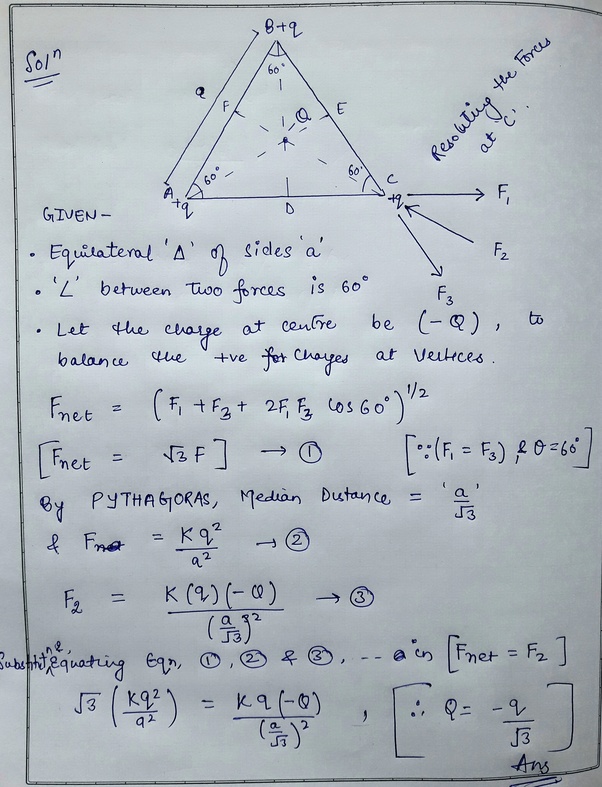 Solⁿ
B+q
60°
a
F
E
Q
60°
60°
A
+q
D
C
+q
Resolving the Forces
at 'C'.
F₁
F₂
F₃
GIVEN -
• Equilateral 'Δ' of sides 'a'
• '∠' between two forces is 60°
• Let the charge at centre be (-Q), to
balance the +ve for charges at vertices.
Fnet = (F₁ + F₃ + 2F₁F₃ cos 60°)^1/2
[Fnet = √3 F] → ① [∵(F₁ = F₃), & θ = 60°]
By PYTHAGORAS, Median Distance = 'a/√3'
& Fnet = Kq²/a² → ②
F₂ = K(q)(-Q)/(a/√3)² → ③
Equating Eqn, ①, ② & ③, -- in [Fnet = F₂]
√3 (Kq²/a²) = Kq(-Q)/(a/√3)², [∴ Q = -q/√3]
Ans